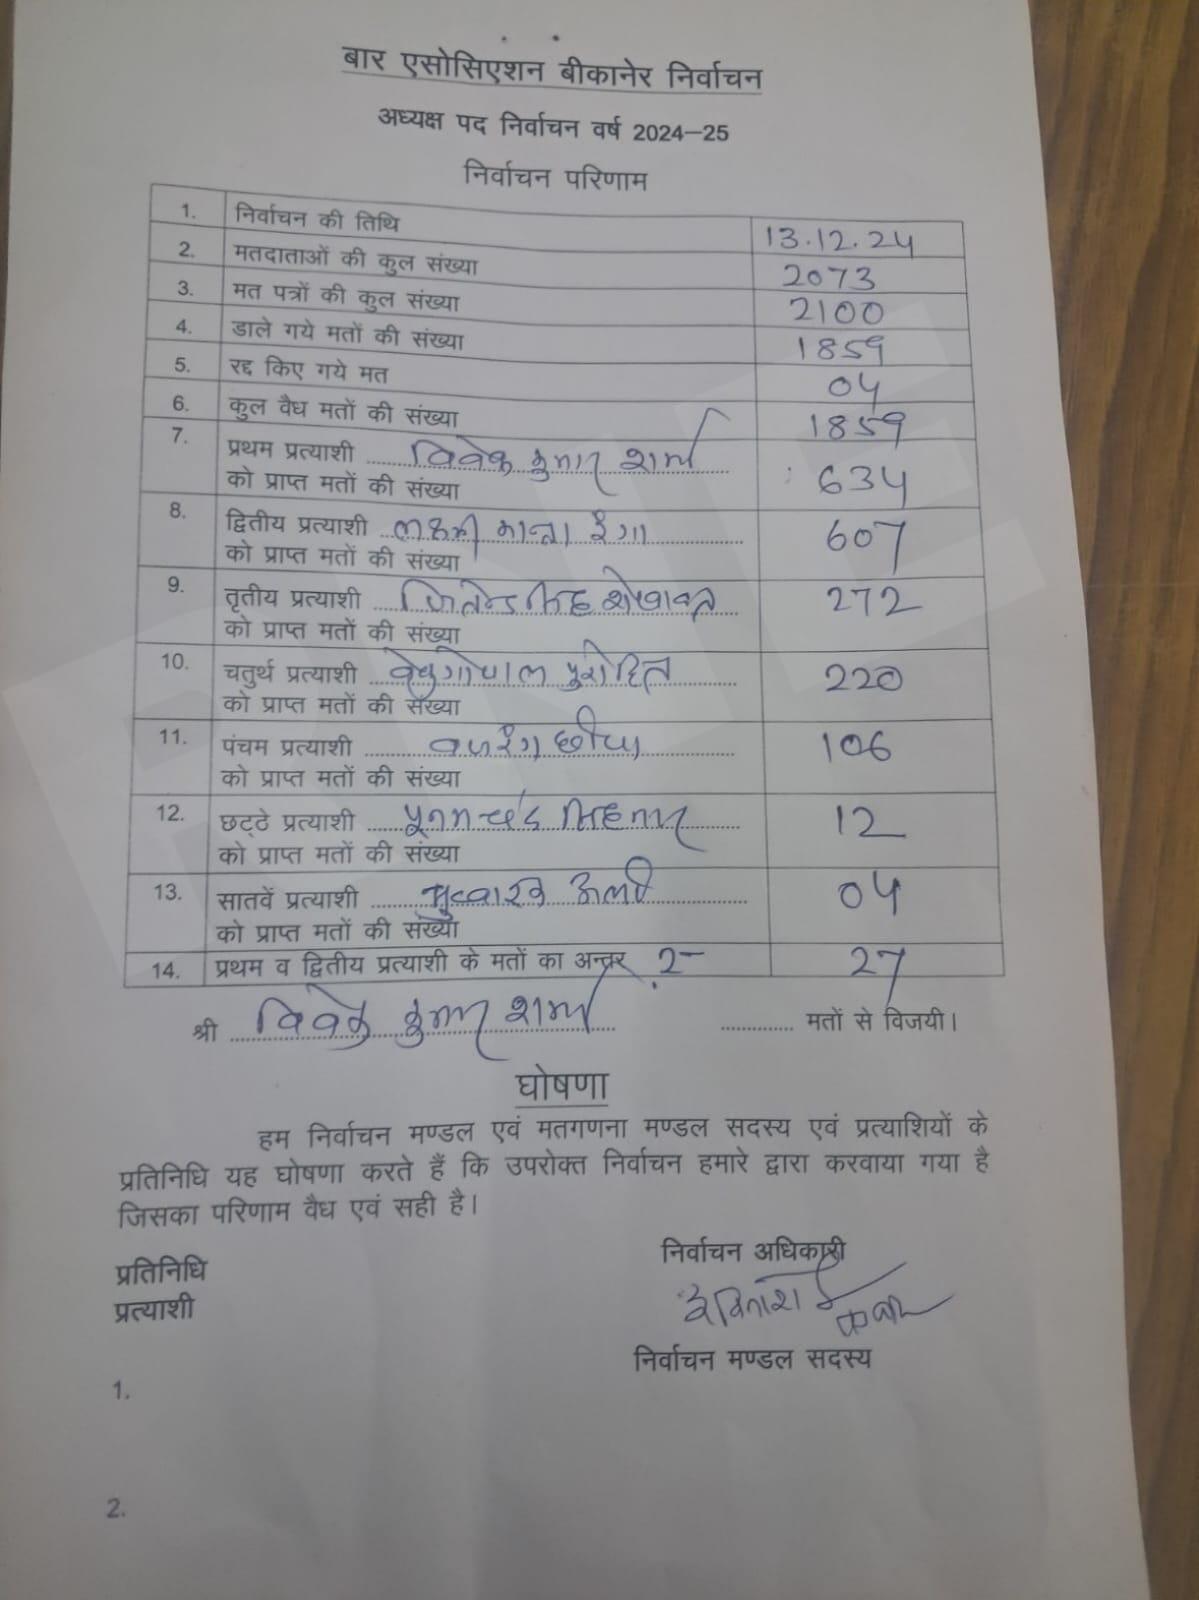 बार एसोसिएशन बीकानेर निर्वाचन
अध्यक्ष पद निर्वाचन वर्ष 2024-25
निर्वाचन परिणाम
1. निर्वाचन की तिथि 13.12.24
2. मतदाताओं की कुल संख्या 2073
3. मत पत्रों की कुल संख्या 2100
4. डाले गये मतों की संख्या 1859
5. रद्द किए गये मत 04
6. कुल वैध मतों की संख्या 1859
7. प्रथम प्रत्याशी विवेक कुमार शर्मा
को प्राप्त मतों की संख्या 634
8. द्वितीय प्रत्याशी लक्ष्मी कान्त रंगा
को प्राप्त मतों की संख्या 607
9. तृतीय प्रत्याशी जितेन्द्र सिंह शेखावत
को प्राप्त मतों की संख्या 272
10. चतुर्थ प्रत्याशी वेणुगोपाल पुरोहित
को प्राप्त मतों की संख्या 220
11. पंचम प्रत्याशी बजरंग छींपा
को प्राप्त मतों की संख्या 106
12. छट्ठे प्रत्याशी पूनमचंद सिंहमार
को प्राप्त मतों की संख्या 12
13. सातवें प्रत्याशी मुबारक अली
को प्राप्त मतों की संख्या 04
14. प्रथम व द्वितीय प्रत्याशी के मतों का अन्तर 27
श्री विवेक कुमार शर्मा ............. मतों से विजयी।
घोषणा
हम निर्वाचन मण्डल एवं मतगणना मण्डल सदस्य एवं प्रत्याशियों के
प्रतिनिधि यह घोषणा करते हैं कि उपरोक्त निर्वाचन हमारे द्वारा करवाया गया है
जिसका परिणाम वैध एवं सही है।
प्रतिनिधि निर्वाचन अधिकारी
प्रत्याशी
निर्वाचन मण्डल सदस्य
1.
2.
RNE